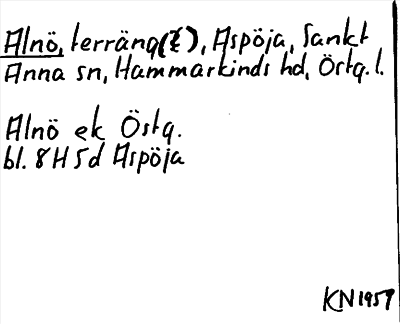 Alnö, terräng(?), Aspöja, Sankt
Anna sn, Hammarkinds hd, Östg. l.
Alnö ek Östg.
bl. 8H5d Aspöja
KN1959